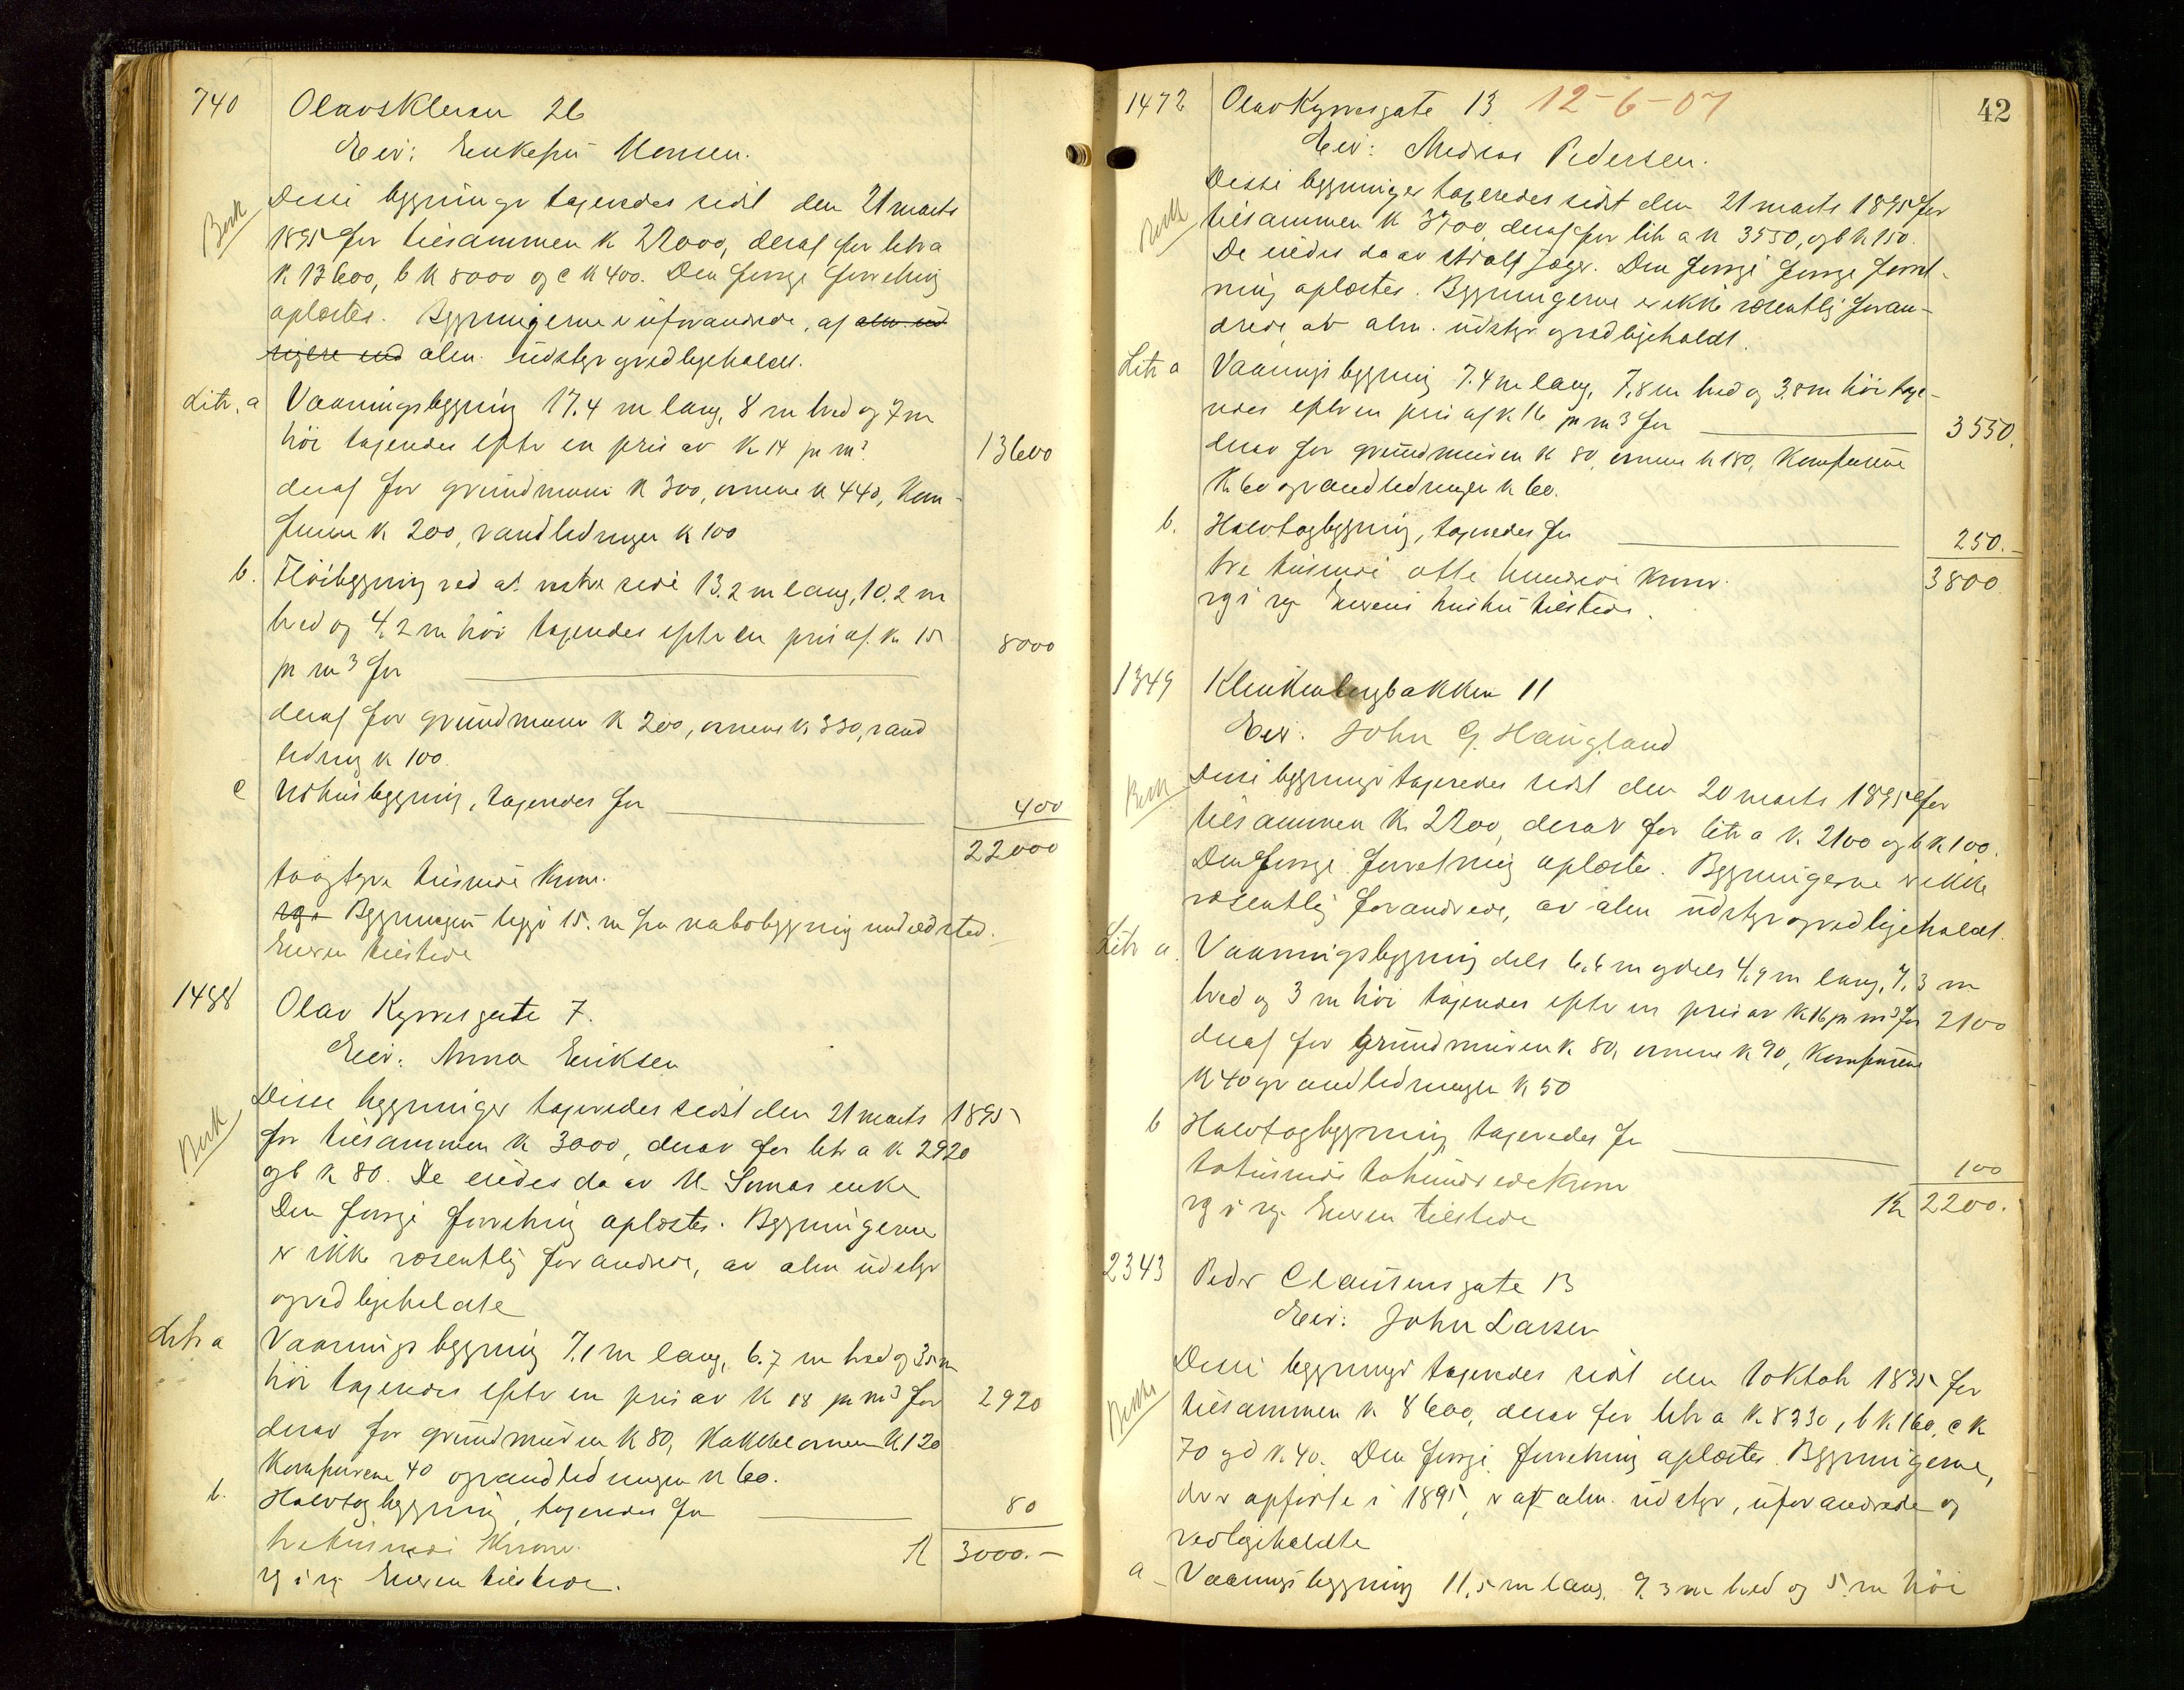 740 Olavskleven 26
Eier: Enkefru Monsen.
Berk Disse bygninger taxeredes sidst den 21 marts
1895 for tilsammen K 22000, deraf for litr a
K 13600, b K 8000 og c K 400. Den forrige forretning
oplæstes. Bygningerne er uforandrede, af alm. ud
rigere end alm. udstyr og vedligeholdt.
Litr. a Vaaningsbygning 17.4 m lang, 8 m bred og 7 m
høi taxeredes efter en pris av K 14 pr m³ 13600
deraf for grundmuren K 300, ovnene K 440, Kom-
furene K 200, vandledningen K 100
b. Fløibygning ved a's vestre side 13.2 m lang, 10.2 m
bred og 4,2 m høi taxeredes efter en pris af K 15
pr m³ for 8000
deraf for grundmuren K 200, ovnene K 330, vand
ledning K 100.
c Udhusbygning, taxeredes for 400
22000
toogtyve tusinde Kroner.
Bygningen ligger 15. m fra nabobygning
Eieren tilstede
1488 Olav Kyrresgate 7.
Eier: Anna Eriksen
Berk Disse bygninger taxeredes sidst den 21 marts 1895
for tilsammen K 3000, derav for litr a K 2920
og b K 80. De eiedes da av M. Sømas enke
Den forrige forretning oplæstes. Bygningerne
er ikke væsentlig forandrede, av alm udstyr
og vedligeholdte
Litr a Vaaningsbygning 7.1 m lang, 6.7 m bred og 3,5 m
høi taxeredes efter en pris av K 18 pr m³ for 2920
derav for grundmuren K 80, Kakkelovnen K 120
Komfurene 40 og vandledningen K 60.
b. Halvtagbygning, taxeredes for 80
tretusinde Kroner. K 3000.-
rg i rg. Eieren tilstede.
42
1472 Olav Kyrresgate 13 12-6-07
Eier: Andreas Pedersen.
Berk Disse bygninger taxeredes sidst den 21 marts 1895 for
tilsammen K 3700, deraf for litr a K 3550, og b K 150.
De eiedes da av Adolf Jæger. Den forrige forrige forret-
ning oplæstes. Bygningerne er ikke væsentlig foran-
drede, av alm. udstyr og vedligeholdt.
Litr a Vaaningsbygning 7.4 m lang, 7,8 m bred og 3,8 m høi taxe-
redes efter en pris af K 16 pr m³ for 3550.
derav for grundmuren K 80, ovnene K 180, Komfurene
K 60 og vandledningen K 60.
b. Halvtagbygning, taxeredes for 250.-
tre tusinde otte hundrede Kroner. 3800
rg i rg. Eierens hustru tilstede.
1349 Klinkenbergbakken 11
Eier. John G. Haugland
Berk Disse bygninger taxeredes sidst den 20 marts 1895 for
tilsammen K. 2200, derav for litr a K. 2100 og b K 100.
Den forrige forretning oplæstes. Bygningerne er ikke
væsentlig forandrede, av alm udstyr og vedligeholdt.
Litr a. Vaaningsbygning dels 6,6 m og dels 4,9 m lang, 7,3 m
bred og 3 m høi taxeredes efter en pris av K 16 pr m³ for 2100
deraf for grundmuren K. 80, ovnene K 90, Komfurene
K 40 og vandledningen K 50
b Halvtagbygning taxeredes for 100
totusinde tohundrede Kroner K 2200.
rg i rg. Eieren tilstede
2343 Peder Claussensgate 13
Eier: John Larsen
Berk Disse bygninger taxeredes sidst den 1 oktobr 1895 for
tilsammen K 8600, derav for litr a K 8330, b K 160, c K
70 og d K. 40. Den forrige forretning oplæstes. Bygningerne,
der er opførte i 1895, er af alm. udstyr, uforandrede og
vedligeholdte
a Vaaningsbygning 11,5 m lang, 9,3 m bred og 5 m høi